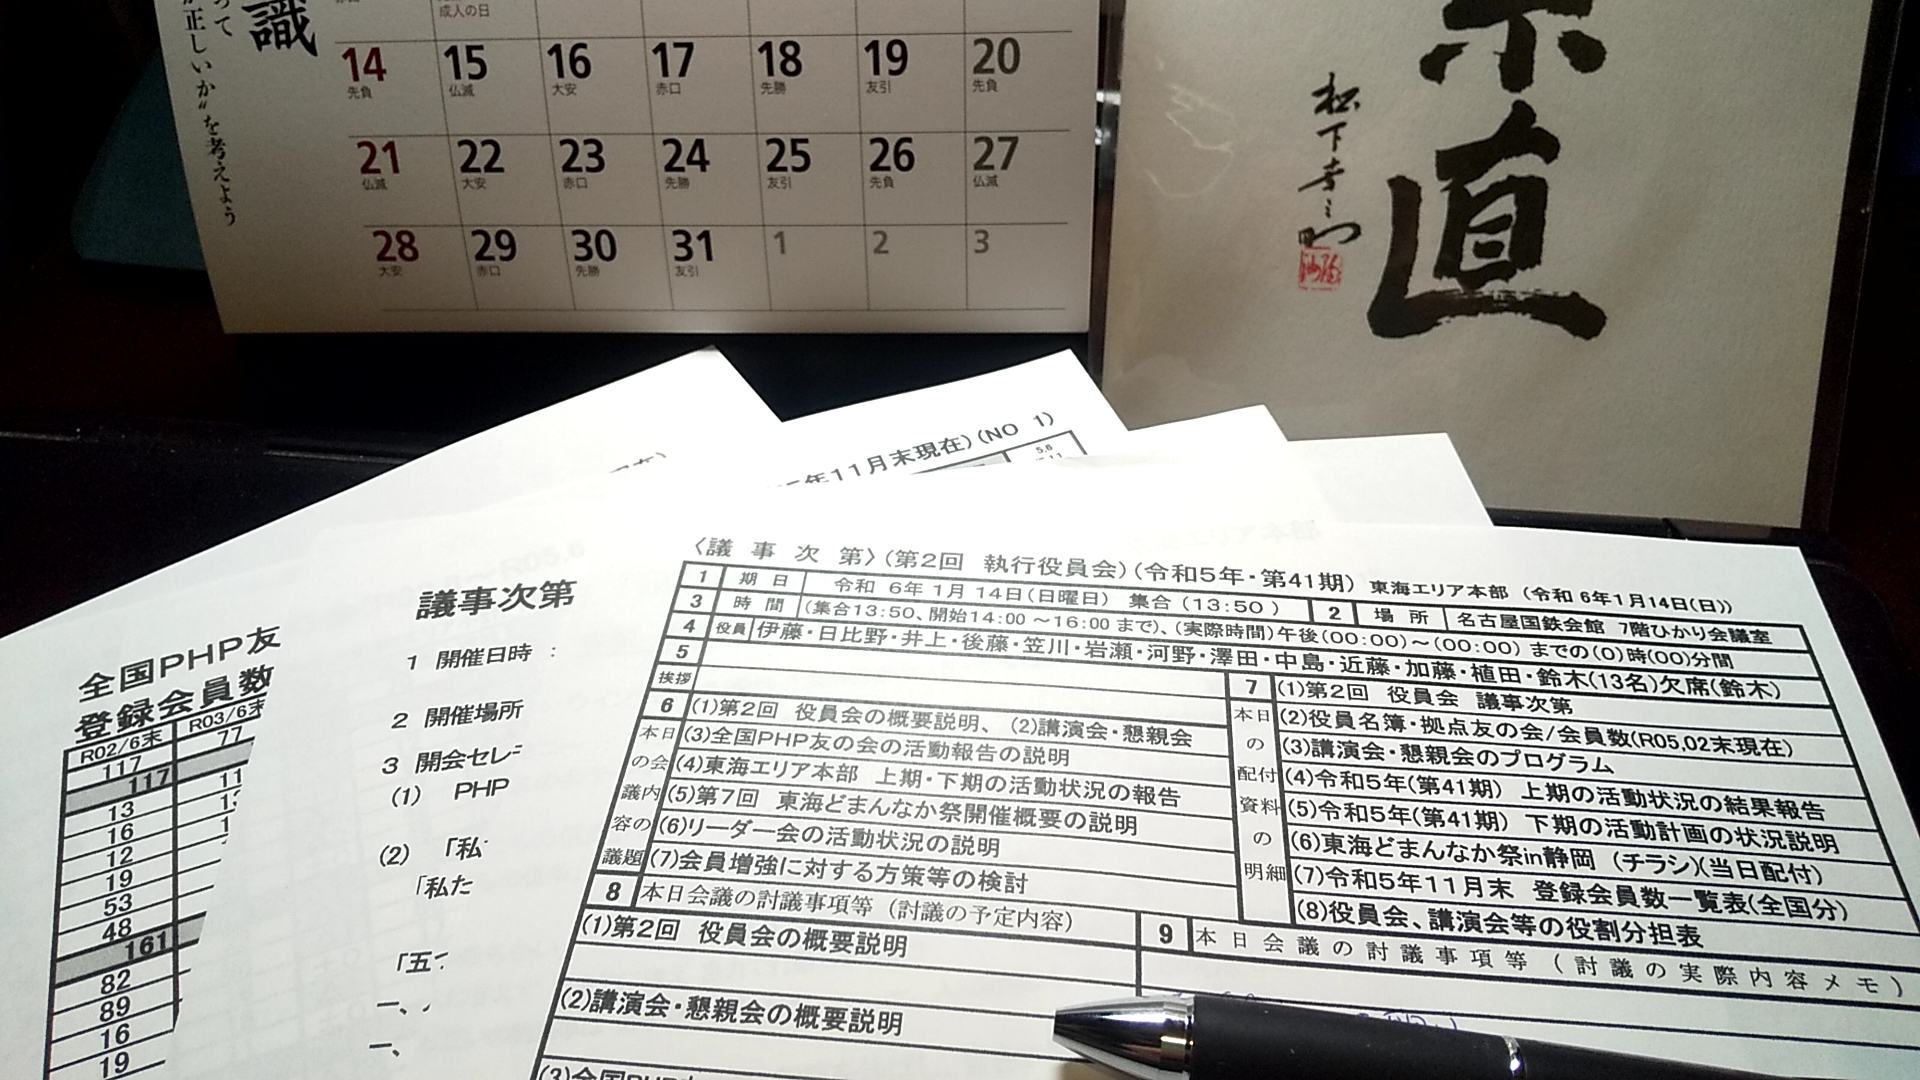 識
って
正しいか"を考えよう
成人の日
14 15 16 17 18 19 20
先負 仏滅 大安 赤口 先勝 友引 先負
21 22 23 24 25 26 27
仏滅 大安 赤口 先勝 友引 先負 仏滅
28 29 30 31 1 2 3
大安 赤口 先勝 友引
直
松下幸之助
年11月末現在)(NO 1)
全国PHP友
登録会員数
R02/6末 R03/6末
117 77
117
13
16
12
19
53
48
161
82
89
16
19
議事次第
1 開催日時 :
2 開催場所
3 開会セレ
(1) PHP
(2) 「私
「私た
「五
一、
一、
〈議 事 次 第〉(第2回 執行役員会)(令和5年・第41期) 東海エリア本部 (令和 6年1月14日(日))
1 期 日 令和 6年 1月 14日(日曜日) 集合 (13:50) 2 場 所 名古屋国鉄会館 7階ひかり会議室
3 時 間 (集合13:50、開始14:00 ~16:00 まで)、(実際時間)午後(00:00)~(00:00) までの(0)時(00)分間
4 役員 伊藤・日比野・井上・後藤・笠川・岩瀬・河野・澤田・中島・近藤・加藤・植田・鈴木(13名)欠席(鈴木)
5 挨拶
6 本日の会議内容の議題
(1)第2回 役員会の概要説明、(2)講演会・懇親会
(3)全国PHP友の会の活動報告の説明
(4)東海エリア本部 上期・下期の活動状況の報告
(5)第7回 東海どまんなか祭開催概要の説明
(6)リーダー会の活動状況の説明
(7)会員増強に対する方策等の検討
7 本日の配付資料の明細
(1)第2回 役員会 議事次第
(2)役員名簿・拠点友の会/会員数(R05,02末現在)
(3)講演会・懇親会のプログラム
(4)令和5年(第41期) 上期の活動状況の結果報告
(5)令和5年(第41期) 下期の活動計画の状況説明
(6)東海どまんなか祭in静岡 (チラシ)(当日配付)
(7)令和5年11月末 登録会員数一覧表(全国分)
(8)役員会、講演会等の役割分担表
8 本日会議の討議事項等 (討議の予定内容)
9 本日会議の討議事項等 (討議の実際内容メモ)
(1)第2回 役員会の概要説明
(2)講演会・懇親会の概要説明
(3)全国PHP